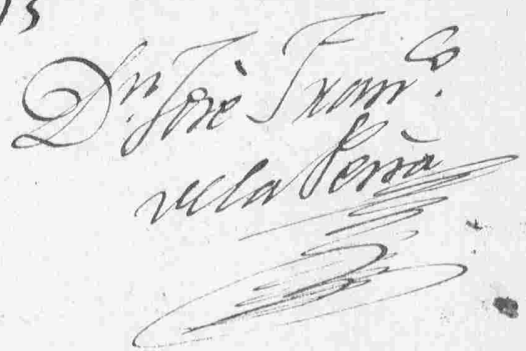 Dn. Josè Franco.
de la Peña